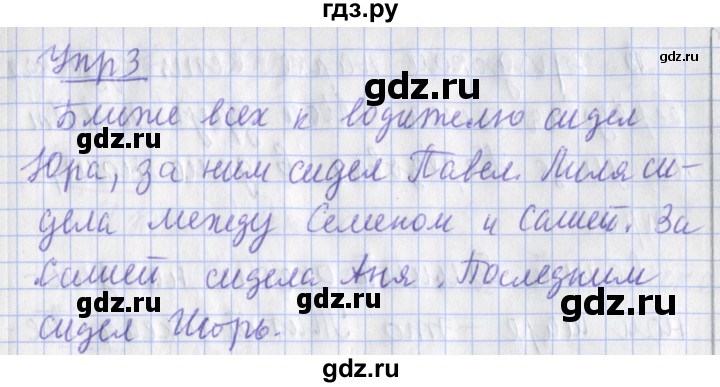 гдз.ру
Упр 3
gdz.ru
gdz.ru
Ближе всех к водителю сидел
Юра, за ним сидел Павел. Лиля си-
gdz.ru
дела между Семеном и Сашей. За
Сашей сидела Аня. Последним
gdz.ru
gdz.ru
сидел Игорь.
gdz.ru
gdz.ru